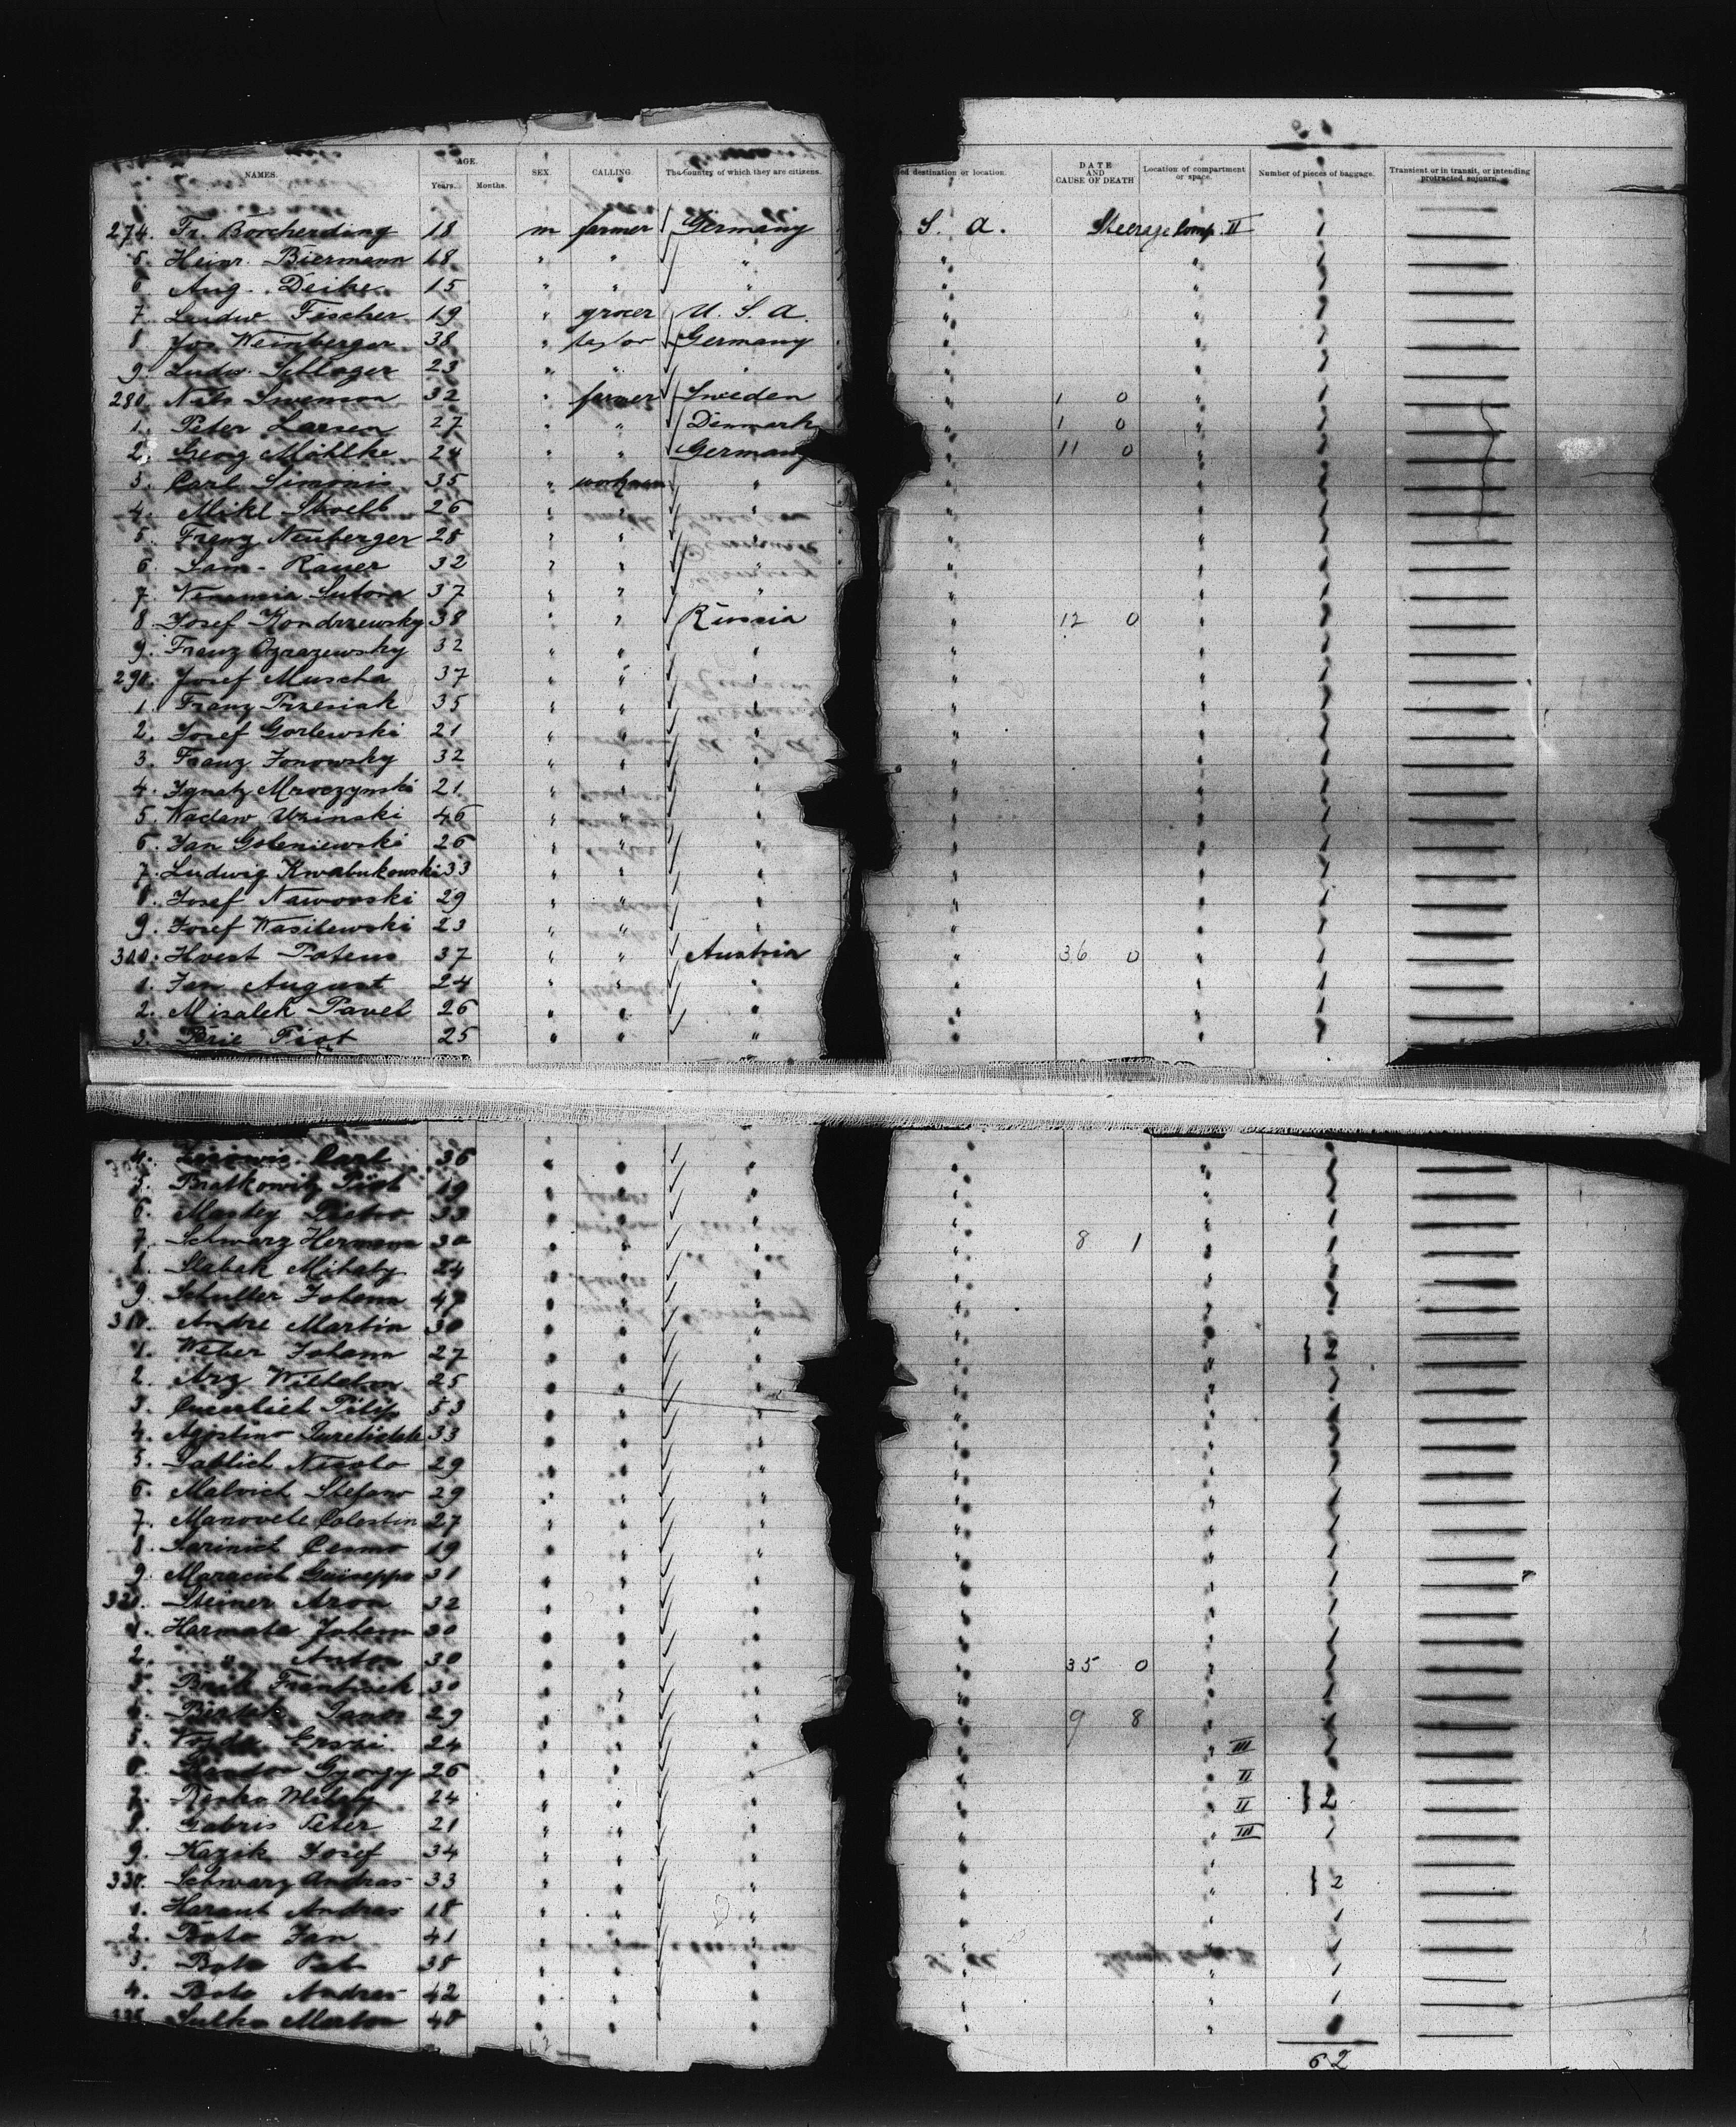 NAMES. AGE. Years. Months. SEX CALLING. The Country of which they are citizens. ed destination or location. DATE AND CAUSE OF DEATH Location of compartment or space. Number of pieces of baggage. Transient or in transit, or intending protracted sojourn.
274. Fr. Borcherding 18 m farmer Germany S. A. Steerage Comp. II 1
5. Heinr. Biermann 18 " " " " " 1
6. Aug. Deike 15 " " " " " 1
7. Ludw. Fischer 19 " grocer U. S. A. " " 1
8. Jos Weinberger 38 " Germany " " 1
9. Ludw. Schlager 23 " " " " " 1
280. Nils Swenson 32 " farmer Sweden " 1 0 " 1
1. Peter Larsen 27 " " Denmark " 1 0 " 1
2. Georg Möhlke 24 " " Germany " 11 0 " 1
3. Carl Simonis 35 " workman " " " 1
4. Mikl 26 " " " " 1
5. Franz Neuberger 28 " " " " 1
6. Sam. Rauer 32 " " " " " 1
7. Sutora 37 " " " " " 1
8. Josef Kondrzewsky 38 " " Russia " 12 0 " 1
9. Franz Ozrazewsky 32 " " " " " 1
290. Josef Muscha 37 " " " " " 1
1. Franz Przesiak 35 " " " " " 1
2. Josef Gorlewski 21 " " " " " 1
3. Franz Jonowsky 32 " " " " " 1
4. Ignatz Mroczynski 21 " " " " " 1
5. Waclaw Usinski 46 " " " " " 1
6. Jan Goleniewski 26 " " " " " 1
7. Ludwig Kwabukowski 33 " " " " " 1
8. Josef Naworski 29 " " " " " 1
9. Josef Wasilewski 23 " " " " " 1
300. Hvest Potens 37 " " Austria " 36 0 " 1
1. Jan August 24 " " " " " 1
2. Misalek Pavel 26 " " " " " 1
3. Piot 25 " " " " " 1
4. Carl 36 " " " " 1
5. Bratkowitz Piot 19 " " " " " 1
6. Mastey 33 " " " " " 1
7. Schwarz Hermann 30 " " " " 8 1 " 1
8. Slabek Mihaly 24 " " " " " 1
9. Schuller Johann 47 " " " " "
310. Andre Martin 30 " " " " "
1. Weber Johann 27 " " " " " } 2
2. Arz Wilhelm 25 " " " " " 1
3. Pilip 53 " " " " " 1
4. Agostino 33 " " " " " 1
5. Sablich Nicolo 29 " " " " " 1
6. Malvich Stefano 29 " " " " " 1
7. Manovele Celestin 27 " " " " " 1
8. Karinich Cosmo 19 " " " " " 1
9. Maracich Guiseppe 31 " " " " " 1
320. Steiner Aron 32 " " " " " 1
1. Harmata Johann 30 " " " " " 1
2. " Anton 30 " " " " 35 0 " 1
3. Frantisek 30 " " " " " 1
4. Janos 29 " " " " 9 8 " 1
5. Vojda 24 " " " " " III 1
6. Gyorgy 26 " " " " " II
7. Mihaly 24 " " " " " II } 2
8. Gabris Peter 21 " " " " " III 1
9. Kazik Josef 34 " " " " "
330. Schwarz Andras 33 " " " " " } 2
1. Haraut Andras 18 " " " " " 1
2. Boto Jan 41 " " " " " 1
3. Boto 38 " " " " " 1
4. Boto Andras 42 " " " " " 1
335. Sulka Marton 48 " " " " "
62